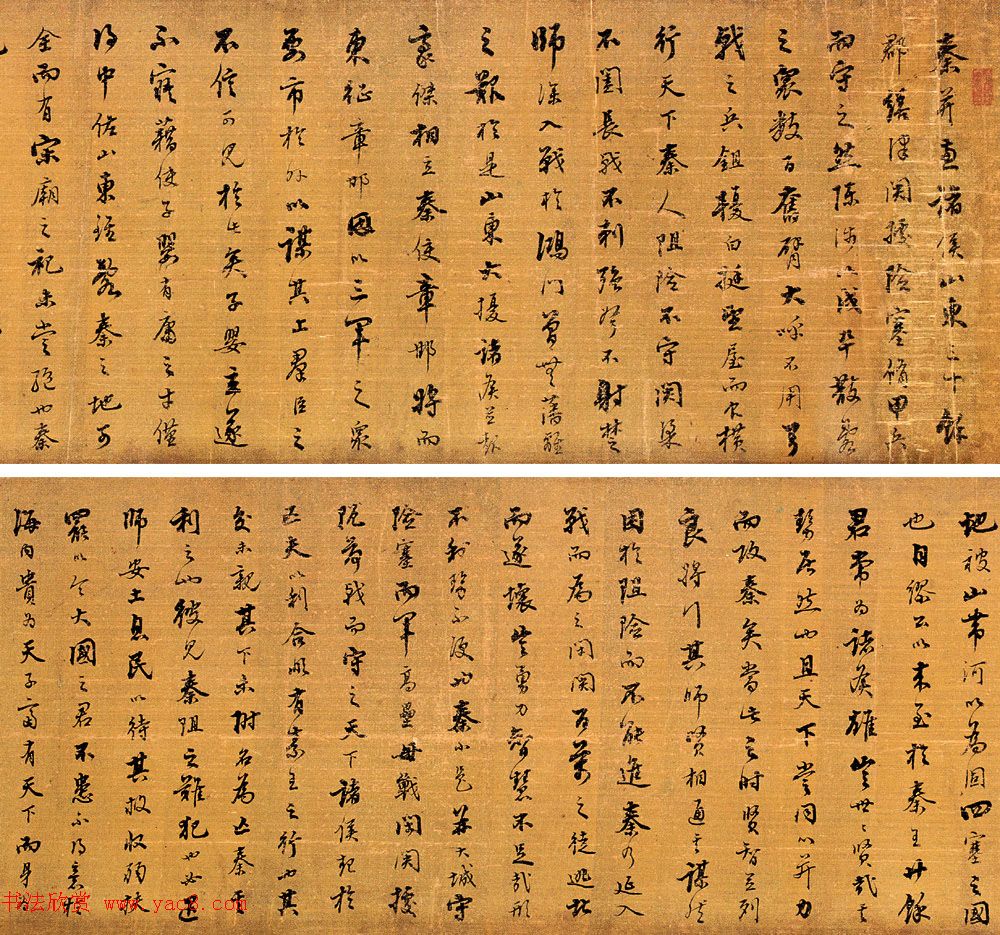 秦并兼諸侯山東三十餘
郡繕津関據險塞脩甲兵
而守之然陳涉以戍卒散亂
之衆數百奮臂大呼不用弓
戟之兵鉏耰白梃望屋而食横
行天下秦人阻險不守関梁
不闔長戟不刺强弩不射楚
師深入戰於鴻門曾無藩籬
之艱於是山東大擾諸侯並起
豪傑相立秦使章邯將而
東征章邯因以三軍之衆
要市於外以謀其上羣臣之
不信可見於此矣子嬰立遂
不寤藉使子嬰有庸之才僅
得中佐山東雖亂秦之地可
全而有宗廟之祀未當絕也秦
地被山帶河以為固四塞之國
也自繆公以来至於秦王廿餘
君常為諸侯雄豈世世賢哉其
勢居然也且天下嘗同心并力
而攻秦矣當此之時賢智並列
良將行其師賢相通其謀然
困於阻險而不能進秦乃延入
戰而為之開関百萬之徒逃北
而遂壞豈勇力智慧不足哉形
不利勢不便也秦小邑并大城守
險塞而軍高壘毋戰閉関據
阨荷戟而守之天下諸侯起於
匹夫以利合非有素王之行也其
交未親其下未附名為亡秦其
利之也彼見秦阻之難犯也必退
師安土息民以待其敝收弱扶
罷以令大國之君不患不得意於
海内貴為天子富有天下而身
书法欣赏 www.yac8.com